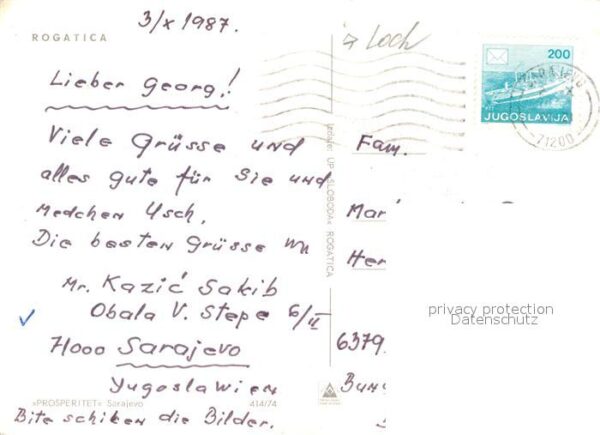 3/x 1987.
ROGATICA
Loch
200
JUGOSLAVIJA
71200
Lieber Georg!
Viele Grüsse und
alles gute für Sie und
Medchen Usch.
Die besten Grüsse
Mr. Kazić Sakib
Obala V. Stepe 6/II
71000 Sarajevo
Yugoslawien
»PROSPERITET« Sarajevo
414/74
Bite schiken die Bilder.
UP »SLOBODA« ROGATICA
Fam.
Mar
Her
6379
Bun
privacy protection
Datenschutz